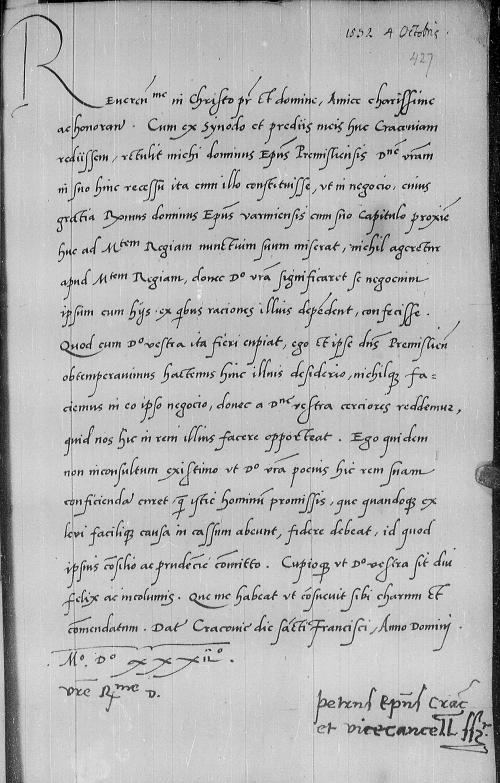 1532 4 Octobris
427
Reveren^me in Christo pr Et domine, Amice charissime
ac honoran. Cum ex Synodo et prediis meis huc Cracoviam
rediissem, retulit michi dominus Epus Premisliensis D^ne vram
in suo hinc recessu ita cum illo constituisse, vt in negocio, cuius
gratia Romus dominus Epus varmiensis cum suo Capitulo proxie
huc ad M^tem Regiam nunctium suum miserat, nichil ageretur
apud M^tem Regiam, donec D^o vra significaret se negocium
ipsum cum hijs ex qbus raciones illius depedent, confecisse.
Quod cum D^o vestra ita fieri cupiat, ego Et ipse dns Premislien
obtemperavimus hactenus hinc illius desiderio, nichilq fa=
ciemus in eo ipso negocio, donec a D^ne vestra cerciores reddemur,
quid nos hic in rem illius facere opporteat. Ego quidem
non inconsultum existimo vt D^o vra pocius hic rem suam
conficienda curet q istic hominu promissis, que quandoq ex
levi faciliq causa in cassum abeunt, fidere debeat, id quod
ipsius cosilio ac prudecie comitto. Cupioq vt D^o vestra sit diu
felix ac incolumis. Que me habeat vt cosuevit sibi charum Et
comendatum. Dat Cracovie die sacti Francisci, Anno Domini
M^o. D^o XXXII^o.
vre R^me D.
petrus Epus Crac
et vicecancell ssr